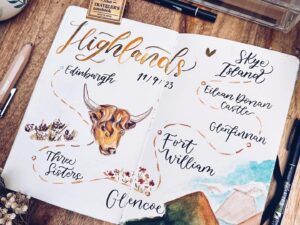 TRAVELER'S
Highlands
Edinburgh
11/9/23
Three
Sisters
Glencoe
Skye
Island
Eilean Donan
Castle
Glenfinnan
Fort
William